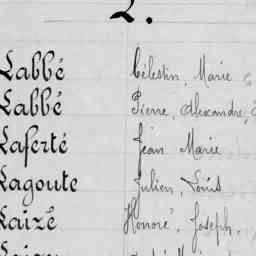 L.
Labbé Célestin, Marie
Labbé Pierre, Alexandre,
Laferté Jean Marie
Lagoute Julien, Louis
Laizé Honoré, Joseph.